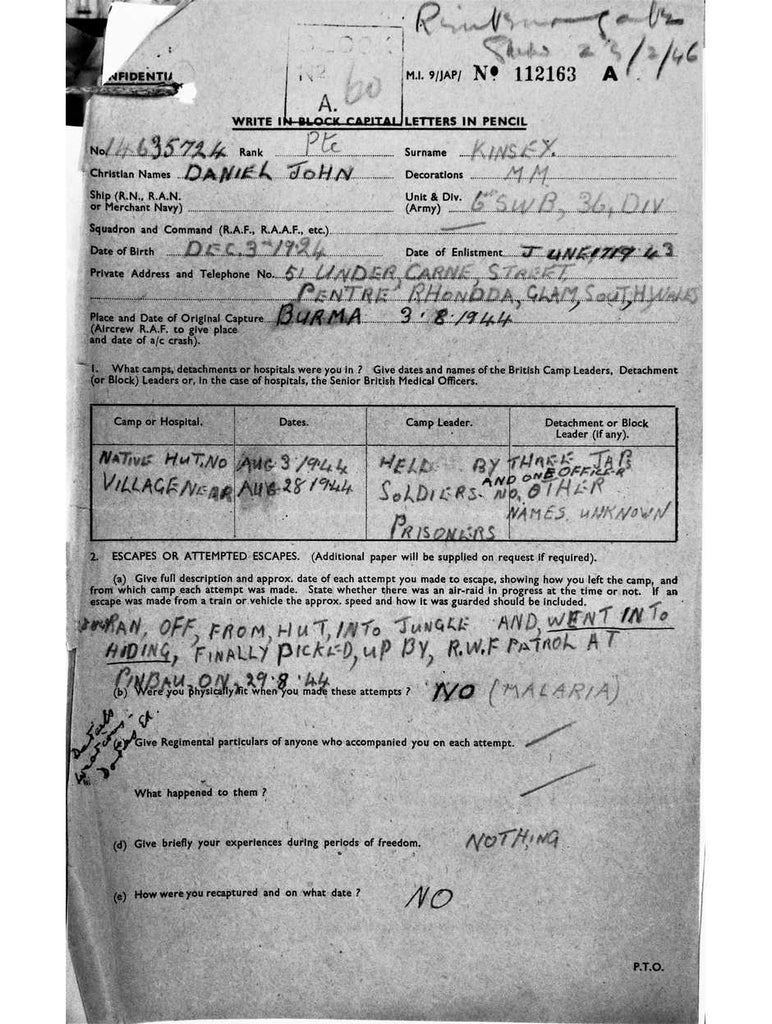 2 3/2/46
NFIDENTIA
BLOCK
Nº 60
A.
M.I. 9/JAP/ Nº 112163 A
WRITE IN BLOCK CAPITAL LETTERS IN PENCIL
No. 14635724 Rank Pte Surname KINSEY.
Christian Names DANIEL JOHN Decorations MM
Ship (R.N., R.A.N. or Merchant Navy)
Unit & Div. (Army) 6th SWB, 36, DIV
Squadron and Command (R.A.F., R.A.A.F., etc.)
Date of Birth DEC. 3rd 1924 Date of Enlistment JUNE 17 1943
Private Address and Telephone No. 51 UNDER, CARNE, STREET
PENTRE, RHONDDA, GLAM, SOUTH, WALES
Place and Date of Original Capture BURMA 3.8.1944
(Aircrew R.A.F. to give place
and date of a/c crash).
1. What camps, detachments or hospitals were you in ? Give dates and names of the British Camp Leaders, Detachment
(or Block) Leaders or, in the case of hospitals, the Senior British Medical Officers.
Camp or Hospital. Dates. Camp Leader. Detachment or Block
Leader (if any).
NATIVE HUT, NO AUG 3/1944 HELD BY THREE JAP
AND ONE OFFICER
VILLAGE NEAR AUG 28/1944 SOLDIERS. NO, OTHER
PRISONERS NAMES UNKNOWN
2. ESCAPES OR ATTEMPTED ESCAPES. (Additional paper will be supplied on request if required).
(a) Give full description and approx. date of each attempt you made to escape, showing how you left the camp, and
from which camp each attempt was made. State whether there was an air-raid in progress at the time or not. If an
escape was made from a train or vehicle the approx. speed and how it was guarded should be included.
RAN, OFF, FROM, HUT, INTO JUNGLE AND, WENT INTO
HIDING, FINALLY PICKED, UP BY, R.W.F PATROL AT
PINBAU, ON, 29.8.44
(b) Were you physically fit when you made these attempts ? NO (MALARIA)
Details
Give Regimental particulars of anyone who accompanied you on each attempt.
What happened to them ?
(d) Give briefly your experiences during periods of freedom. NOTHING
(e) How were you recaptured and on what date ? NO
P.T.O.